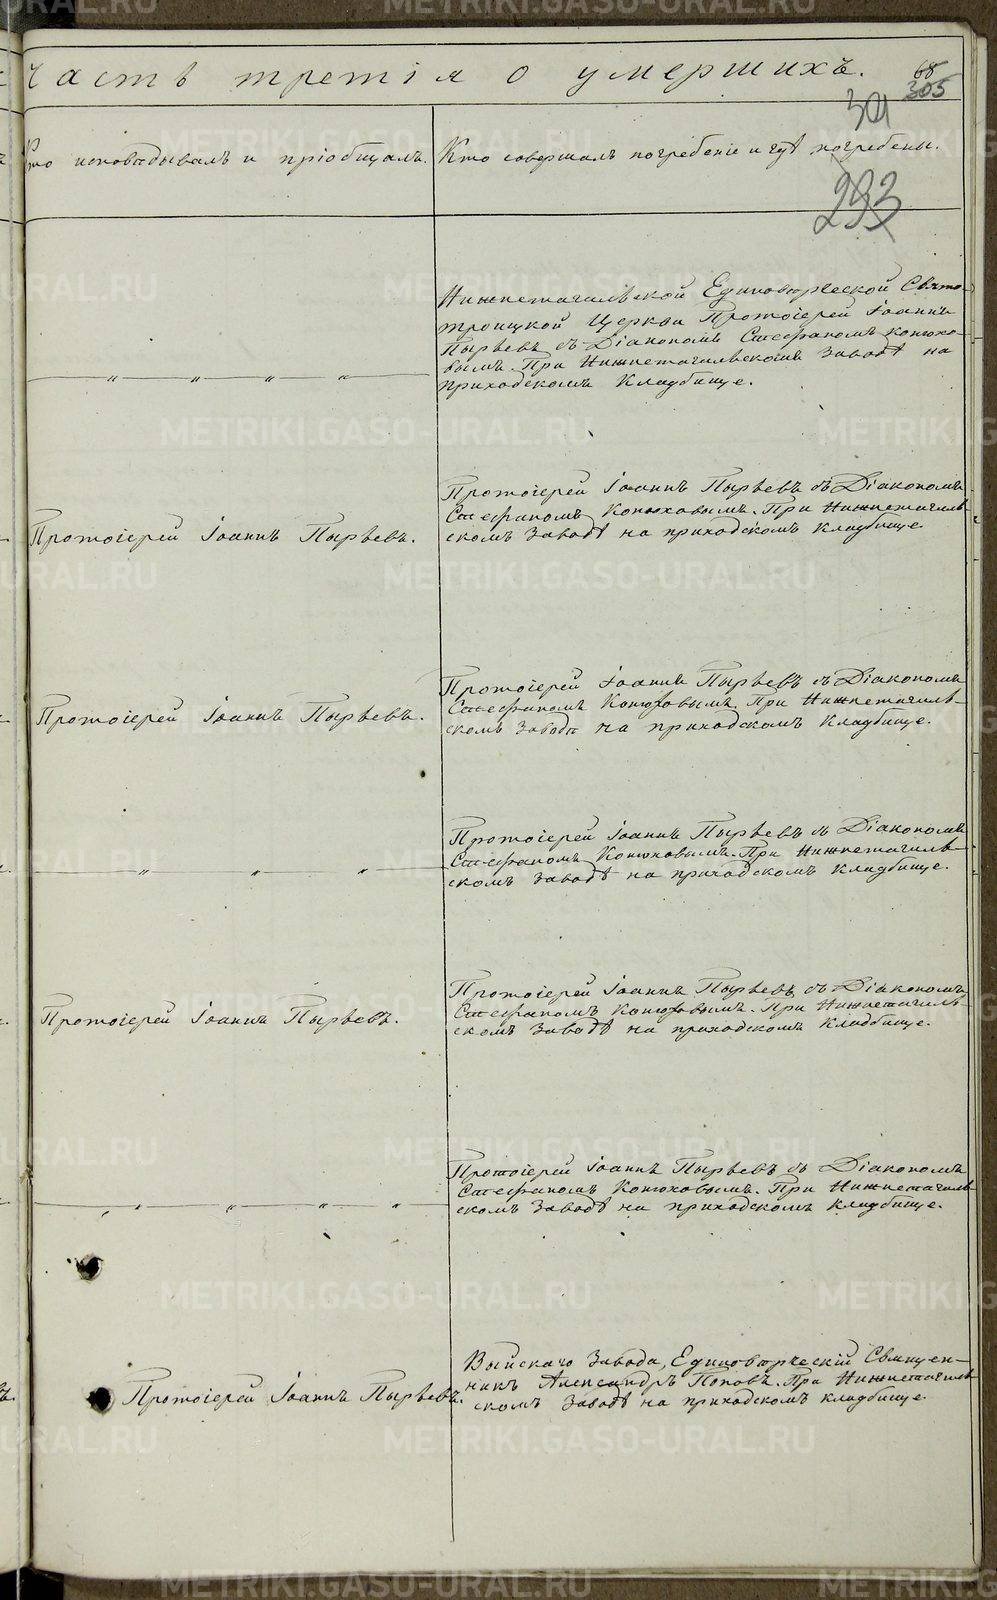 часть третія о умершихъ.
68
305
30
293
Кто исповѣдывалъ и пріобщалъ.
Кто совершалъ погребеніе и гдѣ погребены.
Нижнетагильской Единовѣрческой Свято-
троицкой Церкви Протоіерей Іоаннъ
Пырьевъ съ Діакономъ Стефаномъ Конюхо-
вымъ. При Нижнетагильскомъ заводѣ на
приходскомъ Кладбище.
Протоіерей Іоаннъ Пырьевъ.
Протоіерей Іоаннъ Пырьевъ съ Діакономъ
Стефаномъ Конюховымъ. При Нижнетагиль-
скомъ заводѣ на приходскомъ кладбище
Протоіерей Іоаннъ Пырьевъ.
Протоіерей Іоаннъ Пырьевъ съ Діакономъ
Стефаномъ Конюховымъ. При Нижнетагиль-
скомъ заводѣ на приходскомъ Кладбище.
Протоіерей Іоаннъ Пырьевъ съ Діакономъ
Стефаномъ Конюховымъ. При Нижнетагиль-
скомъ заводѣ на приходскомъ Кладбище.
Протоіерей Іоаннъ Пырьевъ.
Протоіерей Іоаннъ Пырьевъ съ Діакономъ
Стефаномъ Конюховымъ. При Нижнетагиль-
скомъ заводѣ на приходскомъ Кладбище.
Протоіерей Іоаннъ Пырьевъ съ Діакономъ
Стефаномъ Конюховымъ. При Нижнетагиль-
скомъ заводѣ на приходскомъ Кладбище.
Протоіерей Іоаннъ Пырьевъ.
Выйскаго завода, Единовѣрческій Священ-
никъ Александръ Поповъ. При Нижнетагиль-
скомъ заводѣ на приходскомъ кладбище.
METRIKI.GASO-URAL.RU